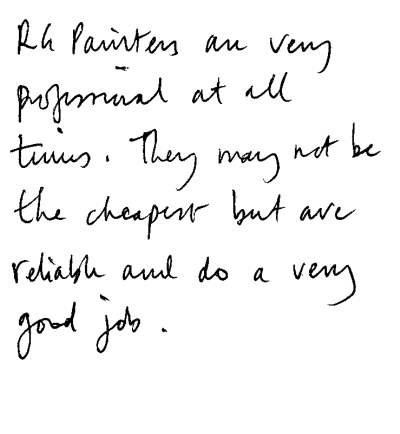 RG Painters are very
professional at all
times. They may not be
the cheapest but are
reliable and do a very
good job.